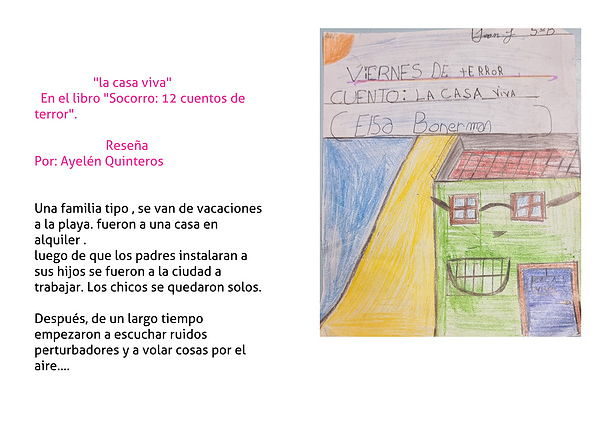 "la casa viva"
En el libro "Socorro: 12 cuentos de
terror".
Reseña
Por: Ayelén Quinteros
Una familia tipo , se van de vacaciones
a la playa. fueron a una casa en
alquiler .
luego de que los padres instalaran a
sus hijos se fueron a la ciudad a
trabajar. Los chicos se quedaron solos.
Después, de un largo tiempo
empezaron a escuchar ruidos
perturbadores y a volar cosas por el
aire....
VIERNES DE tERROR
CUENTO: LA CASA VIVA
( Elsa Bonerman )